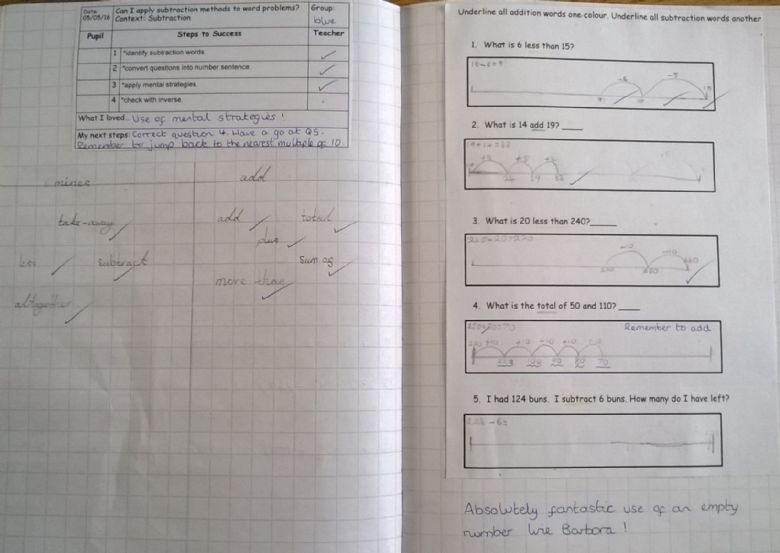 Date:
05/05/16
Can I apply subtraction methods to word problems?
Context: Subtraction
Group:
blue
Pupil
Steps to Success
Teacher
1 *identify subtraction words.
2 *convert questions into number sentence.
3 *apply mental strategies.
4 *check with inverse.
What I loved: Use of mental strategies !
My next steps: Correct question 4. Have a go at Q5.
Remember to jump back to the nearest multiple of 10
add
take-away
add
total
plus
subtract
Sum of
more than
altogether
Underline all addition words one colour. Underline all subtraction words another
1. What is 6 less than 15?
15-6=9
-6
2. What is 14 add 19? ____
3. What is 20 less than 240?____
-10
-10
4. What is the total of 50 and 110? ____
Remember to add.
+10
+10
+10
+10
70
5. I had 124 buns. I subtract 6 buns. How many do I have left?
Absolutely fantastic use of an empty
number line Barbora !